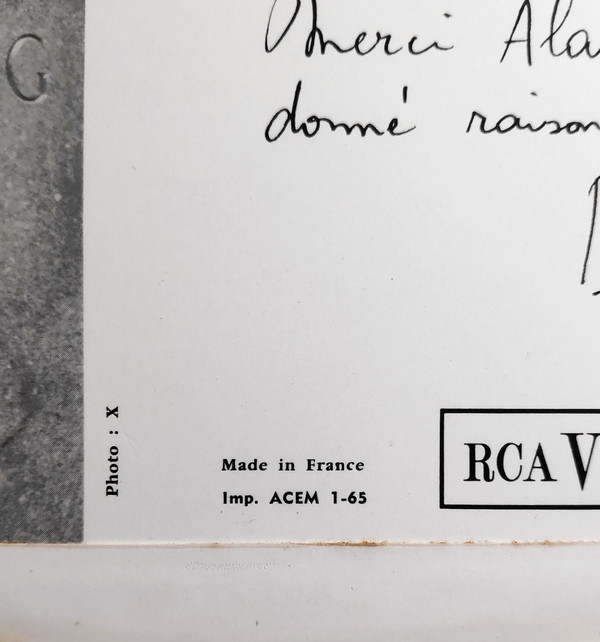 G
Merci Ala
donné raison
Photo : X
Made in France
Imp. ACEM 1-65
RCA V